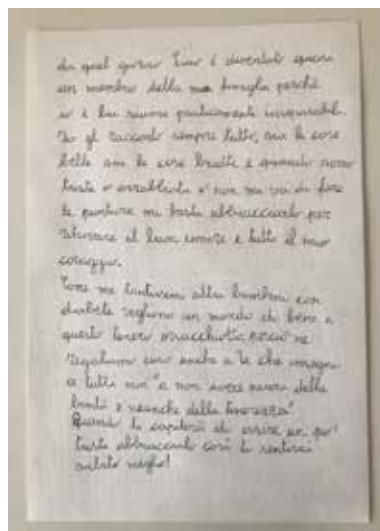 da quel giorno Lino è diventato quasi
un membro della mia famiglia perché
io e lui siamo praticamente inseparabili.
Io gli racconto sempre tutto, sia le cose
belle sia le cose brutte e quando sono
triste o arrabbiata o non mi va di fare
le punture mi basta abbracciarlo per
ritrovare il buon umore e tutto il mio
coraggio.
Come me tantissimi altri bambini con
diabete vogliono un mondo di bene a
questo tenero orsacchiotto, perciò ne
regaliamo uno anche a te che insegni
a tutti noi "a non avere paura della
bontà e neanche della tenerezza"
Quando ti capiterà di essere un po'
triste abbraccialo così ti sentirai
subito meglio!